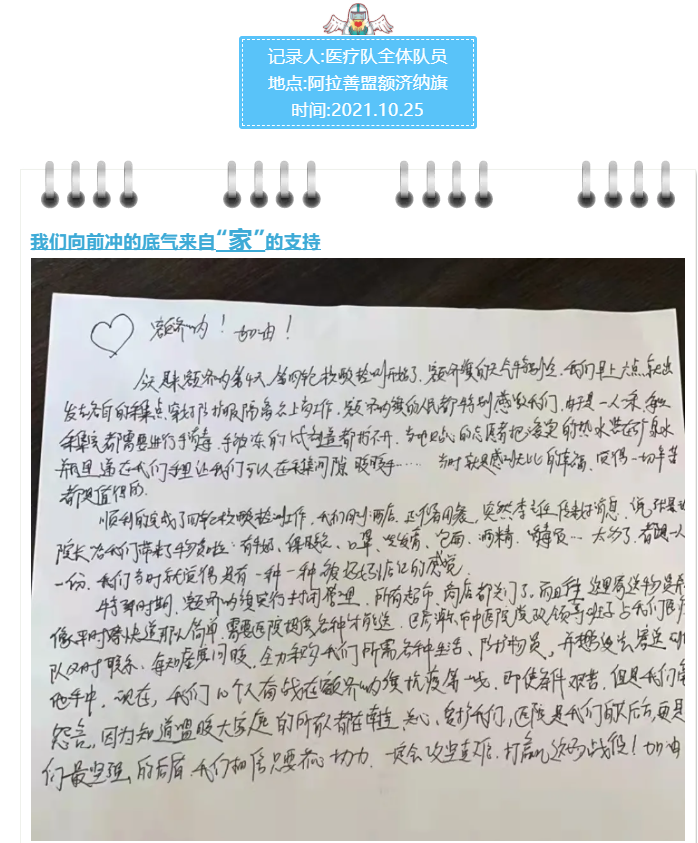 记录人:医疗队全体队员
地点:阿拉善盟额济纳旗
时间:2021.10.25
我们向前冲的底气来自“家”的支持
额济纳!加油!
今天是来额济纳第4天,第四轮核酸检测开始了,额济纳的天气特别冷,我们早上六点就出
发去各自的采集点,穿好防护服隔离衣上岗工作,额济纳旗的人民都特别感激我们,由于是一人一采,每次
采集完都需要进行手消毒,手被冻的试剂盖都打不开,当地的志愿者把滚烫的热水装在矿泉水
瓶里递在我们手里让我们可以在采集间隙暖暖手……当时就感到无比的幸福,觉得一切辛苦
都是值得的。
顺利的完成了四轮核酸检测工作,我们回到酒店,正准备回屋,突然李主任传来好消息,说
院长为我们带来了物资啦:有手套、保暖衣、口罩、发面、酒精、太多了,都是一人
一份,我们当时就觉得是有一种一种被好好惦记的感觉。
特殊时期,额济纳旗实行封闭管理,所有超市、商店都关门了,而且往这里寄送物资不
像平时寄快递那么简单,需要医院协调各种才能送,巴彦淖尔市中医院党政领导班子与我们医疗
队及时联系、每如座问暖,全力采购我们所需各种生活、防护物资,并想办法寄送到
他手中。现在,我们10个人奋战在额济纳旗抗疫第一线,即使条件艰苦,但是我们
怨言,因为知道盟医大家庭的所有人都在牵挂、关心、支持我们,医院是我们的后方,更是
们最坚强的后盾,我们相信只要齐心协力,一定会攻坚克难,打赢这场战役!加油